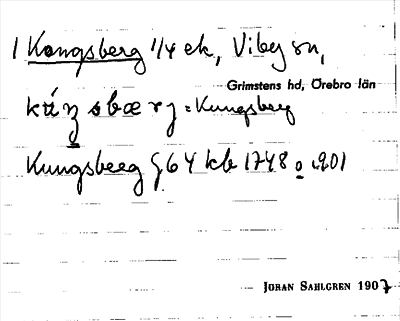 1 Kongsberg 1/4 ek, Viby sn,
Grimstens hd, Örebro län
kúŋsbærj = Kungsberg
Kungsberg G64 kb 1748 o 1901
JÖRAN SAHLGREN 1907